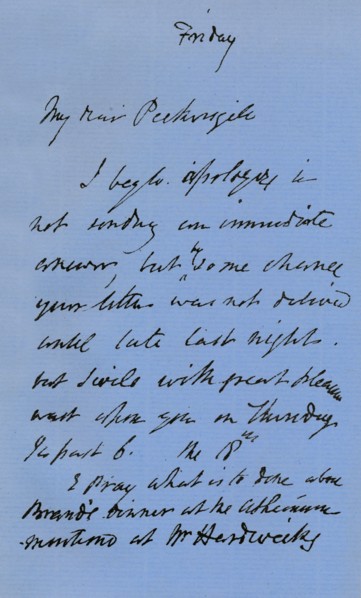 Friday
My dear Pickersgill
I beg to apologize in
not sending an immediate
answer, but by some chance
your letter was not delived
until late last night.
but I will with great pleasure
wait upon you on Thursday
½ past 6. the 8th
& Pray what is to done about
Brand's dinner at the Athenæum
mentiond at Mr Hardwicks